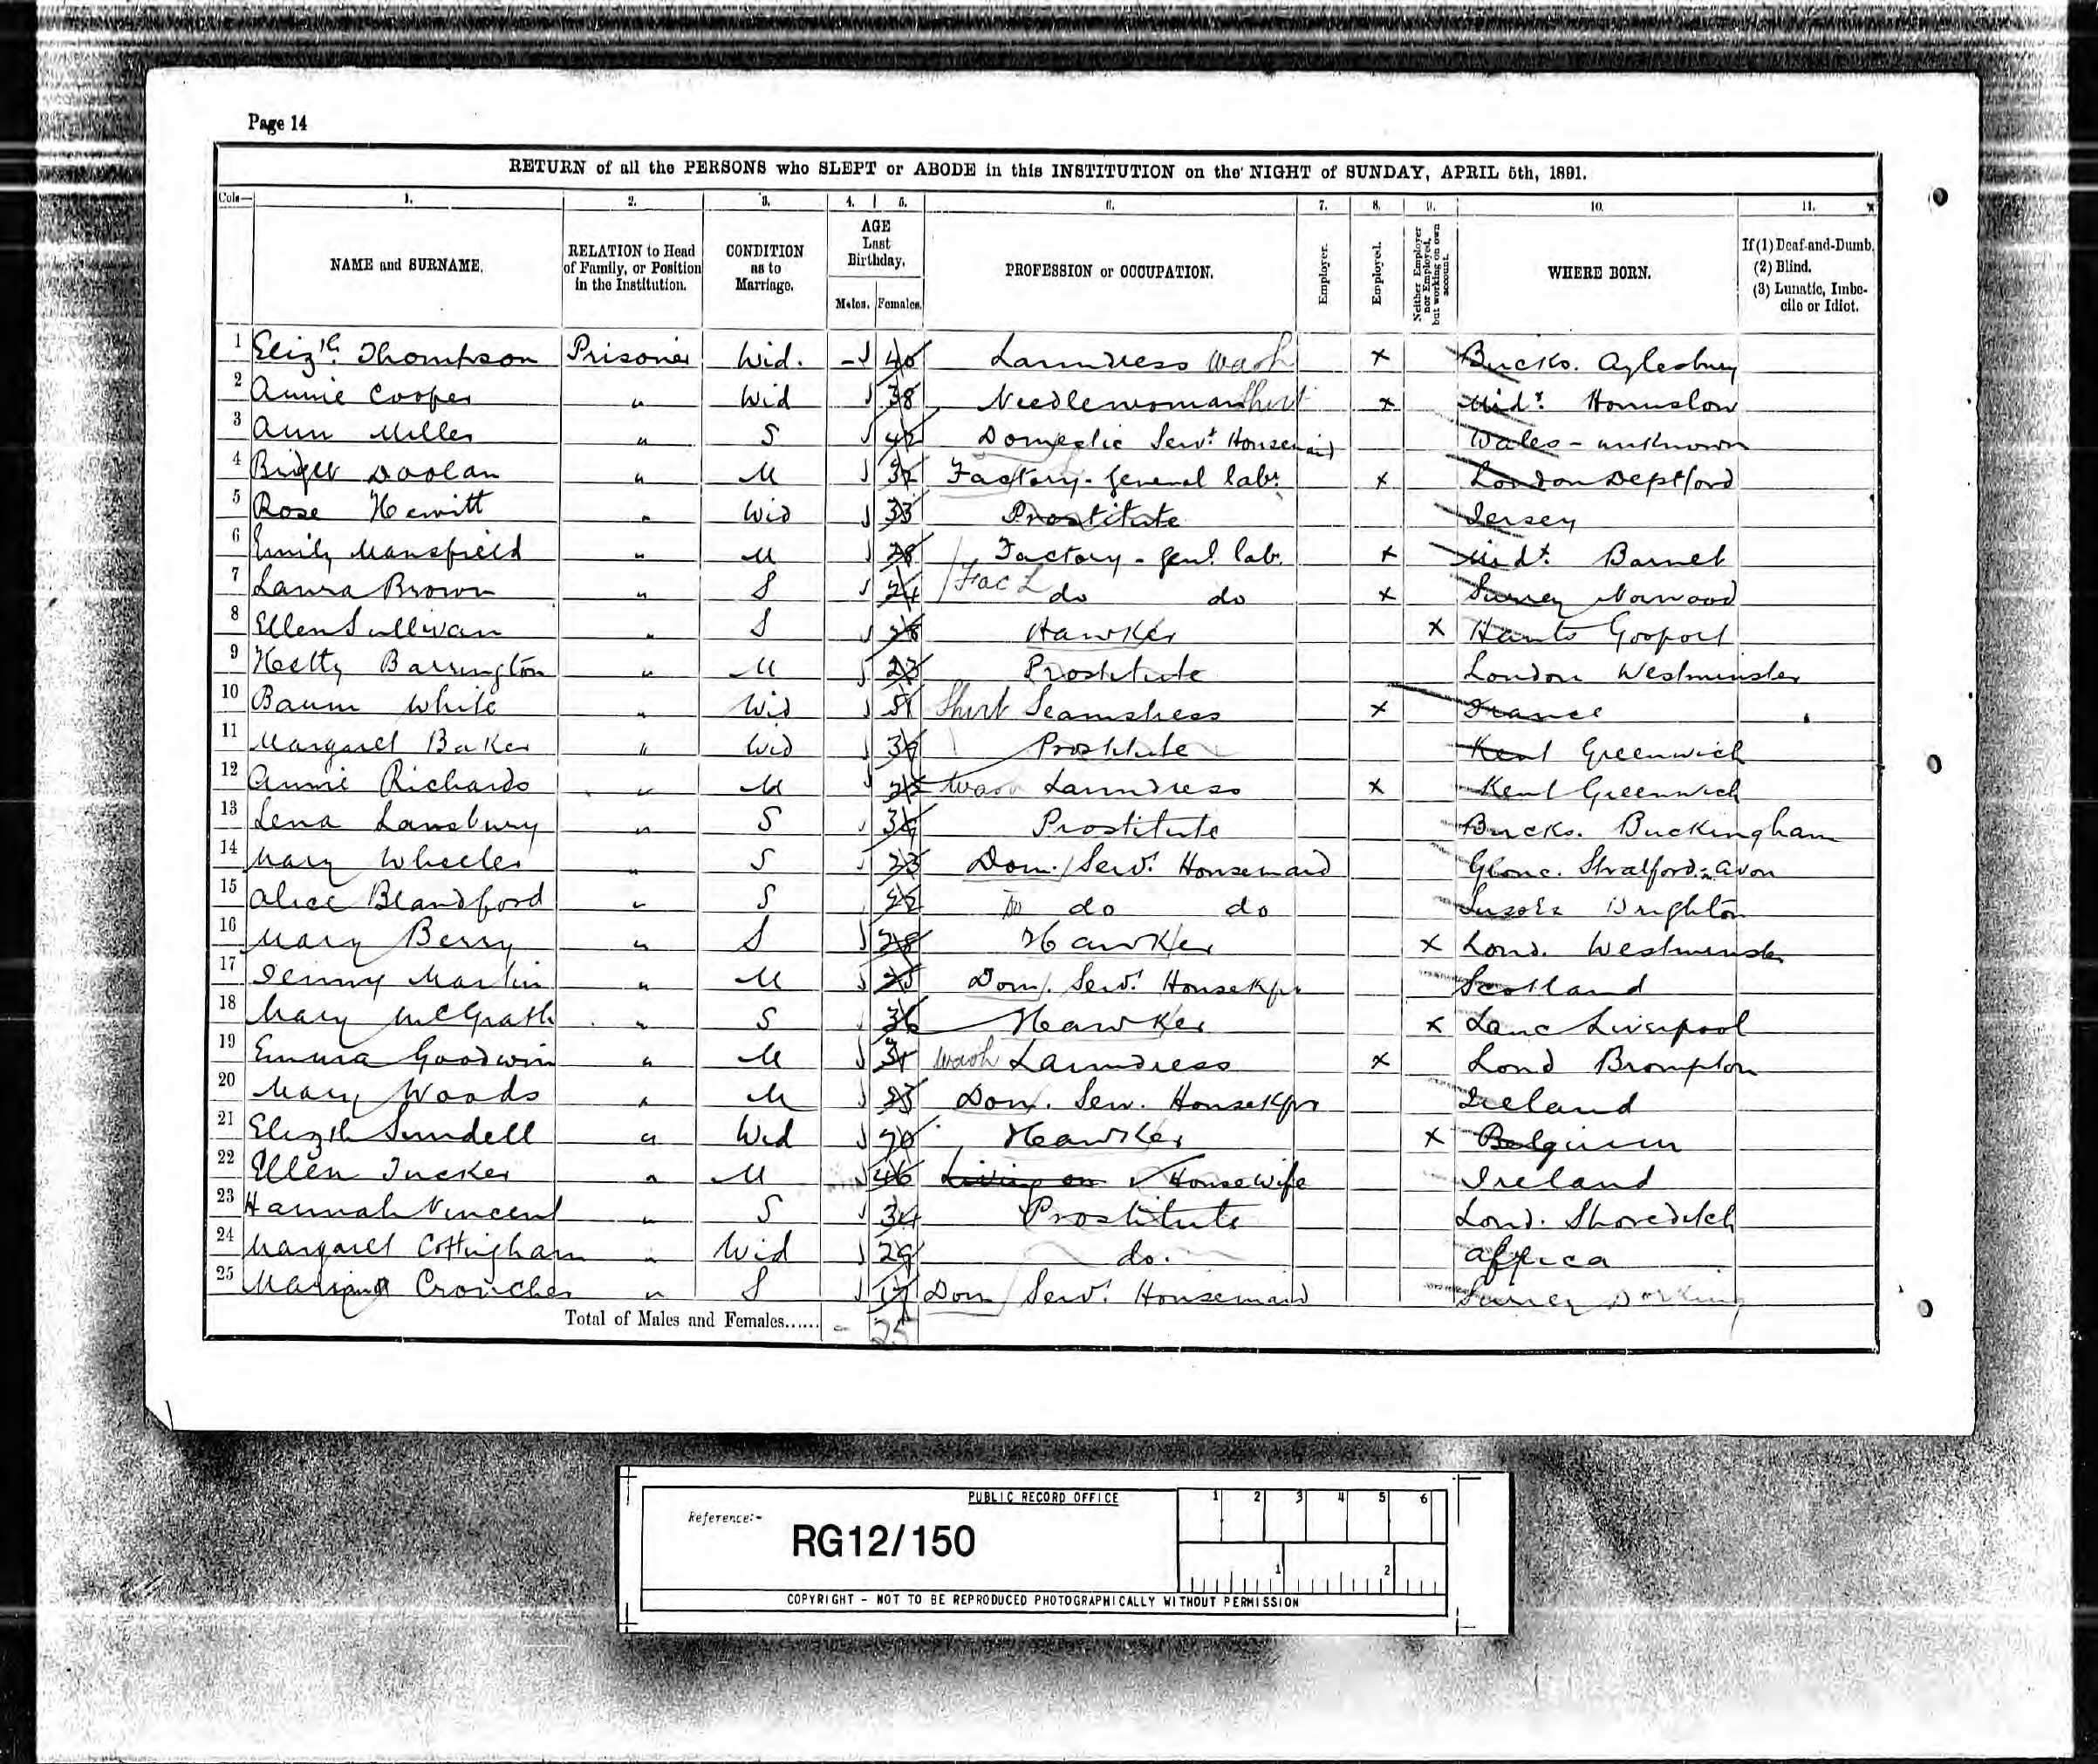 Page 14
RETURN of all the PERSONS who SLEPT or ABODE in this INSTITUTION on the NIGHT of SUNDAY, APRIL 5th, 1891.
Cols— 1. 2. 3. 4. 5. 6. 7. 8. 9. 10. 11.
NAME and SURNAME. RELATION to Head of Family, or Position in the Institution. CONDITION as to Marriage. AGE Last Birthday. Males. Females. PROFESSION or OCCUPATION. Employer. Employed. Neither Employer nor Employed, but working on own account. WHERE BORN. If (1) Deaf-and-Dumb. (2) Blind. (3) Lunatic, Imbecile or Idiot.
1 Elizth. Thompson Prisoner Wid. - 40 Laundress Wash x Bucks. Aylesbury
2 Annie Cooper " Wid 38 Needlewoman Shirt x Midx. Hounslow
3 Ann Miller " S 42 Domestic Servt. Housemaid Wales - unknown
4 Bridget Doolan " M 32 Factory - general labr. x London Deptford
5 Rose Hewitt " Wid 33 Prostitute Jersey
6 Emily Mansfield " M 28 Factory - genl. labr. x Midx. Barnet
7 Laura Brown " S 24 Fac L do do x Surrey Norwood
8 Ellen Sullivan " S 28 Hawker x Hants Gosport
9 Hetty Barrington " M 23 Prostitute London Westminster
10 Baum White " Wid 51 Shirt Seamstress x France
11 Margaret Baker " Wid Prostitute Kent Greenwich
12 Annie Richards " M Wash Laundress x Kent Greenwich
13 Lena Lansbury " S Prostitute Bucks. Buckingham
14 Mary Wheeler " S 23 Dom. Servt. Housemaid Glouc. Stratford-Avon
15 Alice Blandford " S 22 do do Sussex Brighton
16 Mary Berry " S 28 Hawker x Lond. Westminster
17 Jenny Martin " M 25 Dom. Servt. Housekpr Scotland
18 Mary McGrath " S 36 Hawker x Lanc Liverpool
19 Emma Goodwin " M 31 Wash Laundress x Lond Brompton
20 Mary Woods " M Dom. Serv. Housekpr Ireland
21 Elizth Sundell " Wid 70 Hawker x Belgium
22 Ellen Tucker " M 46 Living on Housewife Ireland
23 Hannah Vincent " S 34 Prostitute Lond. Shoreditch
24 Margaret Cottingham " Wid 29 do. Africa
25 Croucher " S 17 Dom Servt. Housemaid Surrey Dorking
Total of Males and Females...... - 25
PUBLIC RECORD OFFICE 1 2 3 4 5 6
Reference:-
RG12/150
1 2
COPYRIGHT - NOT TO BE REPRODUCED PHOTOGRAPHICALLY WITHOUT PERMISSION